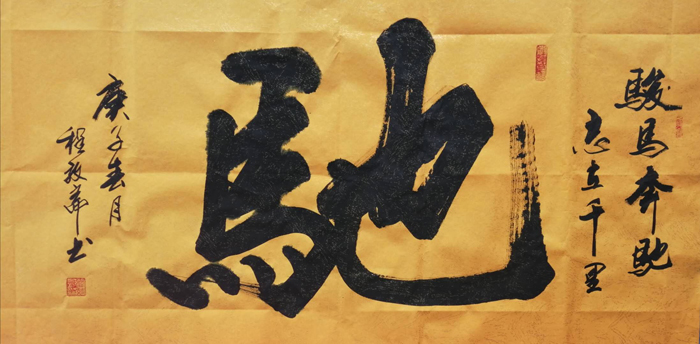 駿馬奔馳
志立千里
馳
庚子春月
程放華书